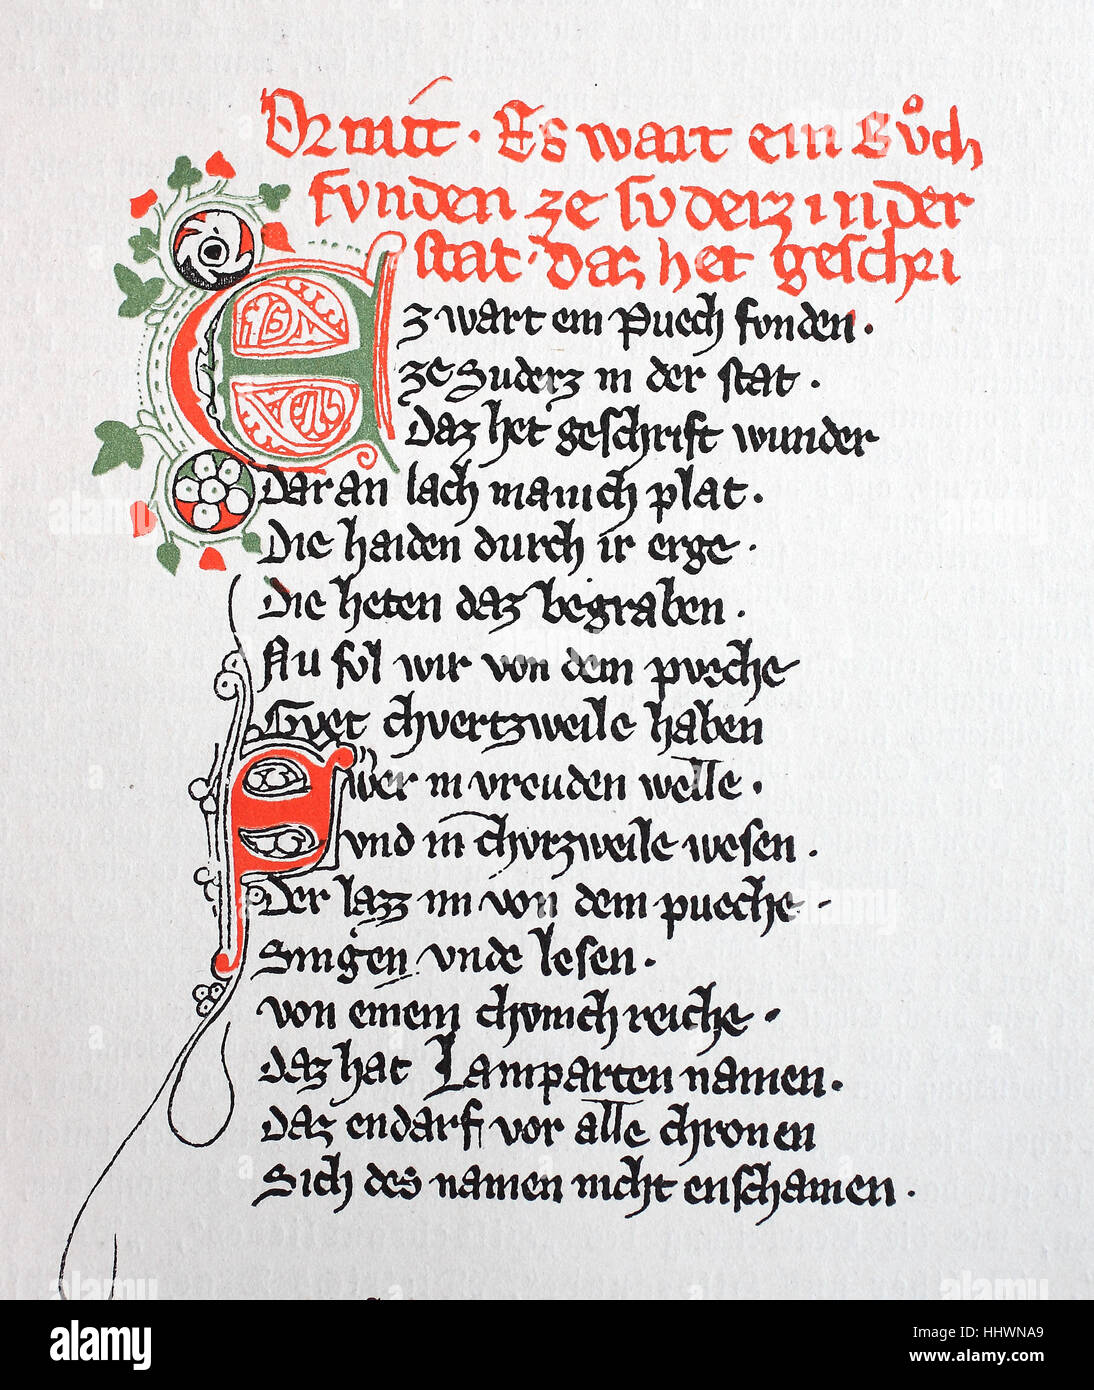 Ortnitt · Es wart ein Bůch
funden ze suderz in der
stat · daz het geschri
Ez wart ein Puech funden ·
ze Suderz in der stat ·
Daz het geschrift wunder
Dar an lach manich plat ·
Die haiden durch ir erge ·
Die heten daz begraben ·
Nu sol wir von dem pueche
Guet churtzweile haben
Swer in vreuden welle ·
vnd in churzweile wesen ·
Der lazz im von dem pueche ·
Singen vnde lesen ·
von einem chunich reiche ·
Daz hat Lamparten namen ·
Daz endarf vor alle chronen
Sich des namen nicht enschamen ·
alamy
Image ID: HHWNA9
www.alamy.com